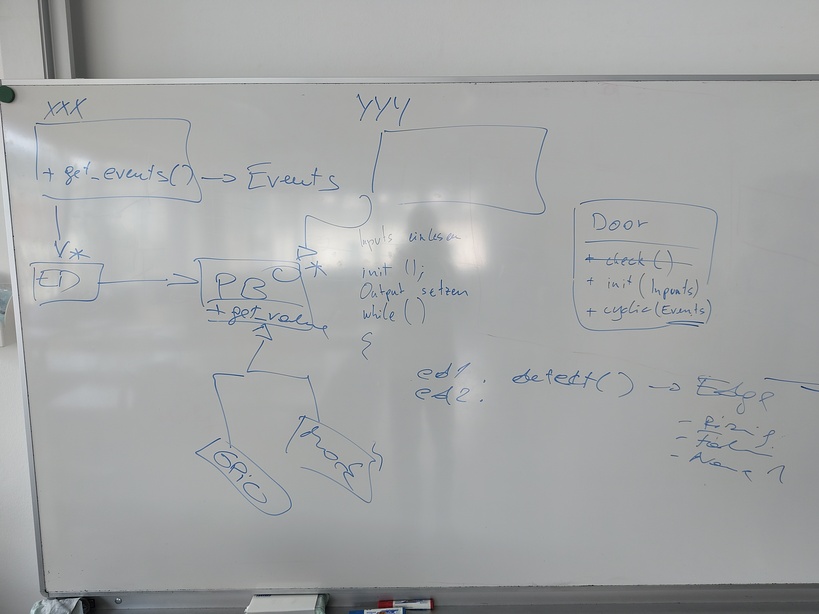 XXX
+ get_events() → Events
ED
*
PB
+ get_value
GPiO
MocK
YYY
*
Inputs einlesen
init ();
Output setzen
while ()
{
Door
+ check ()
+ init (Inputs)
+ cyclic (Events)
ed1
ed2 : detect() → Edge
- Rising
- None